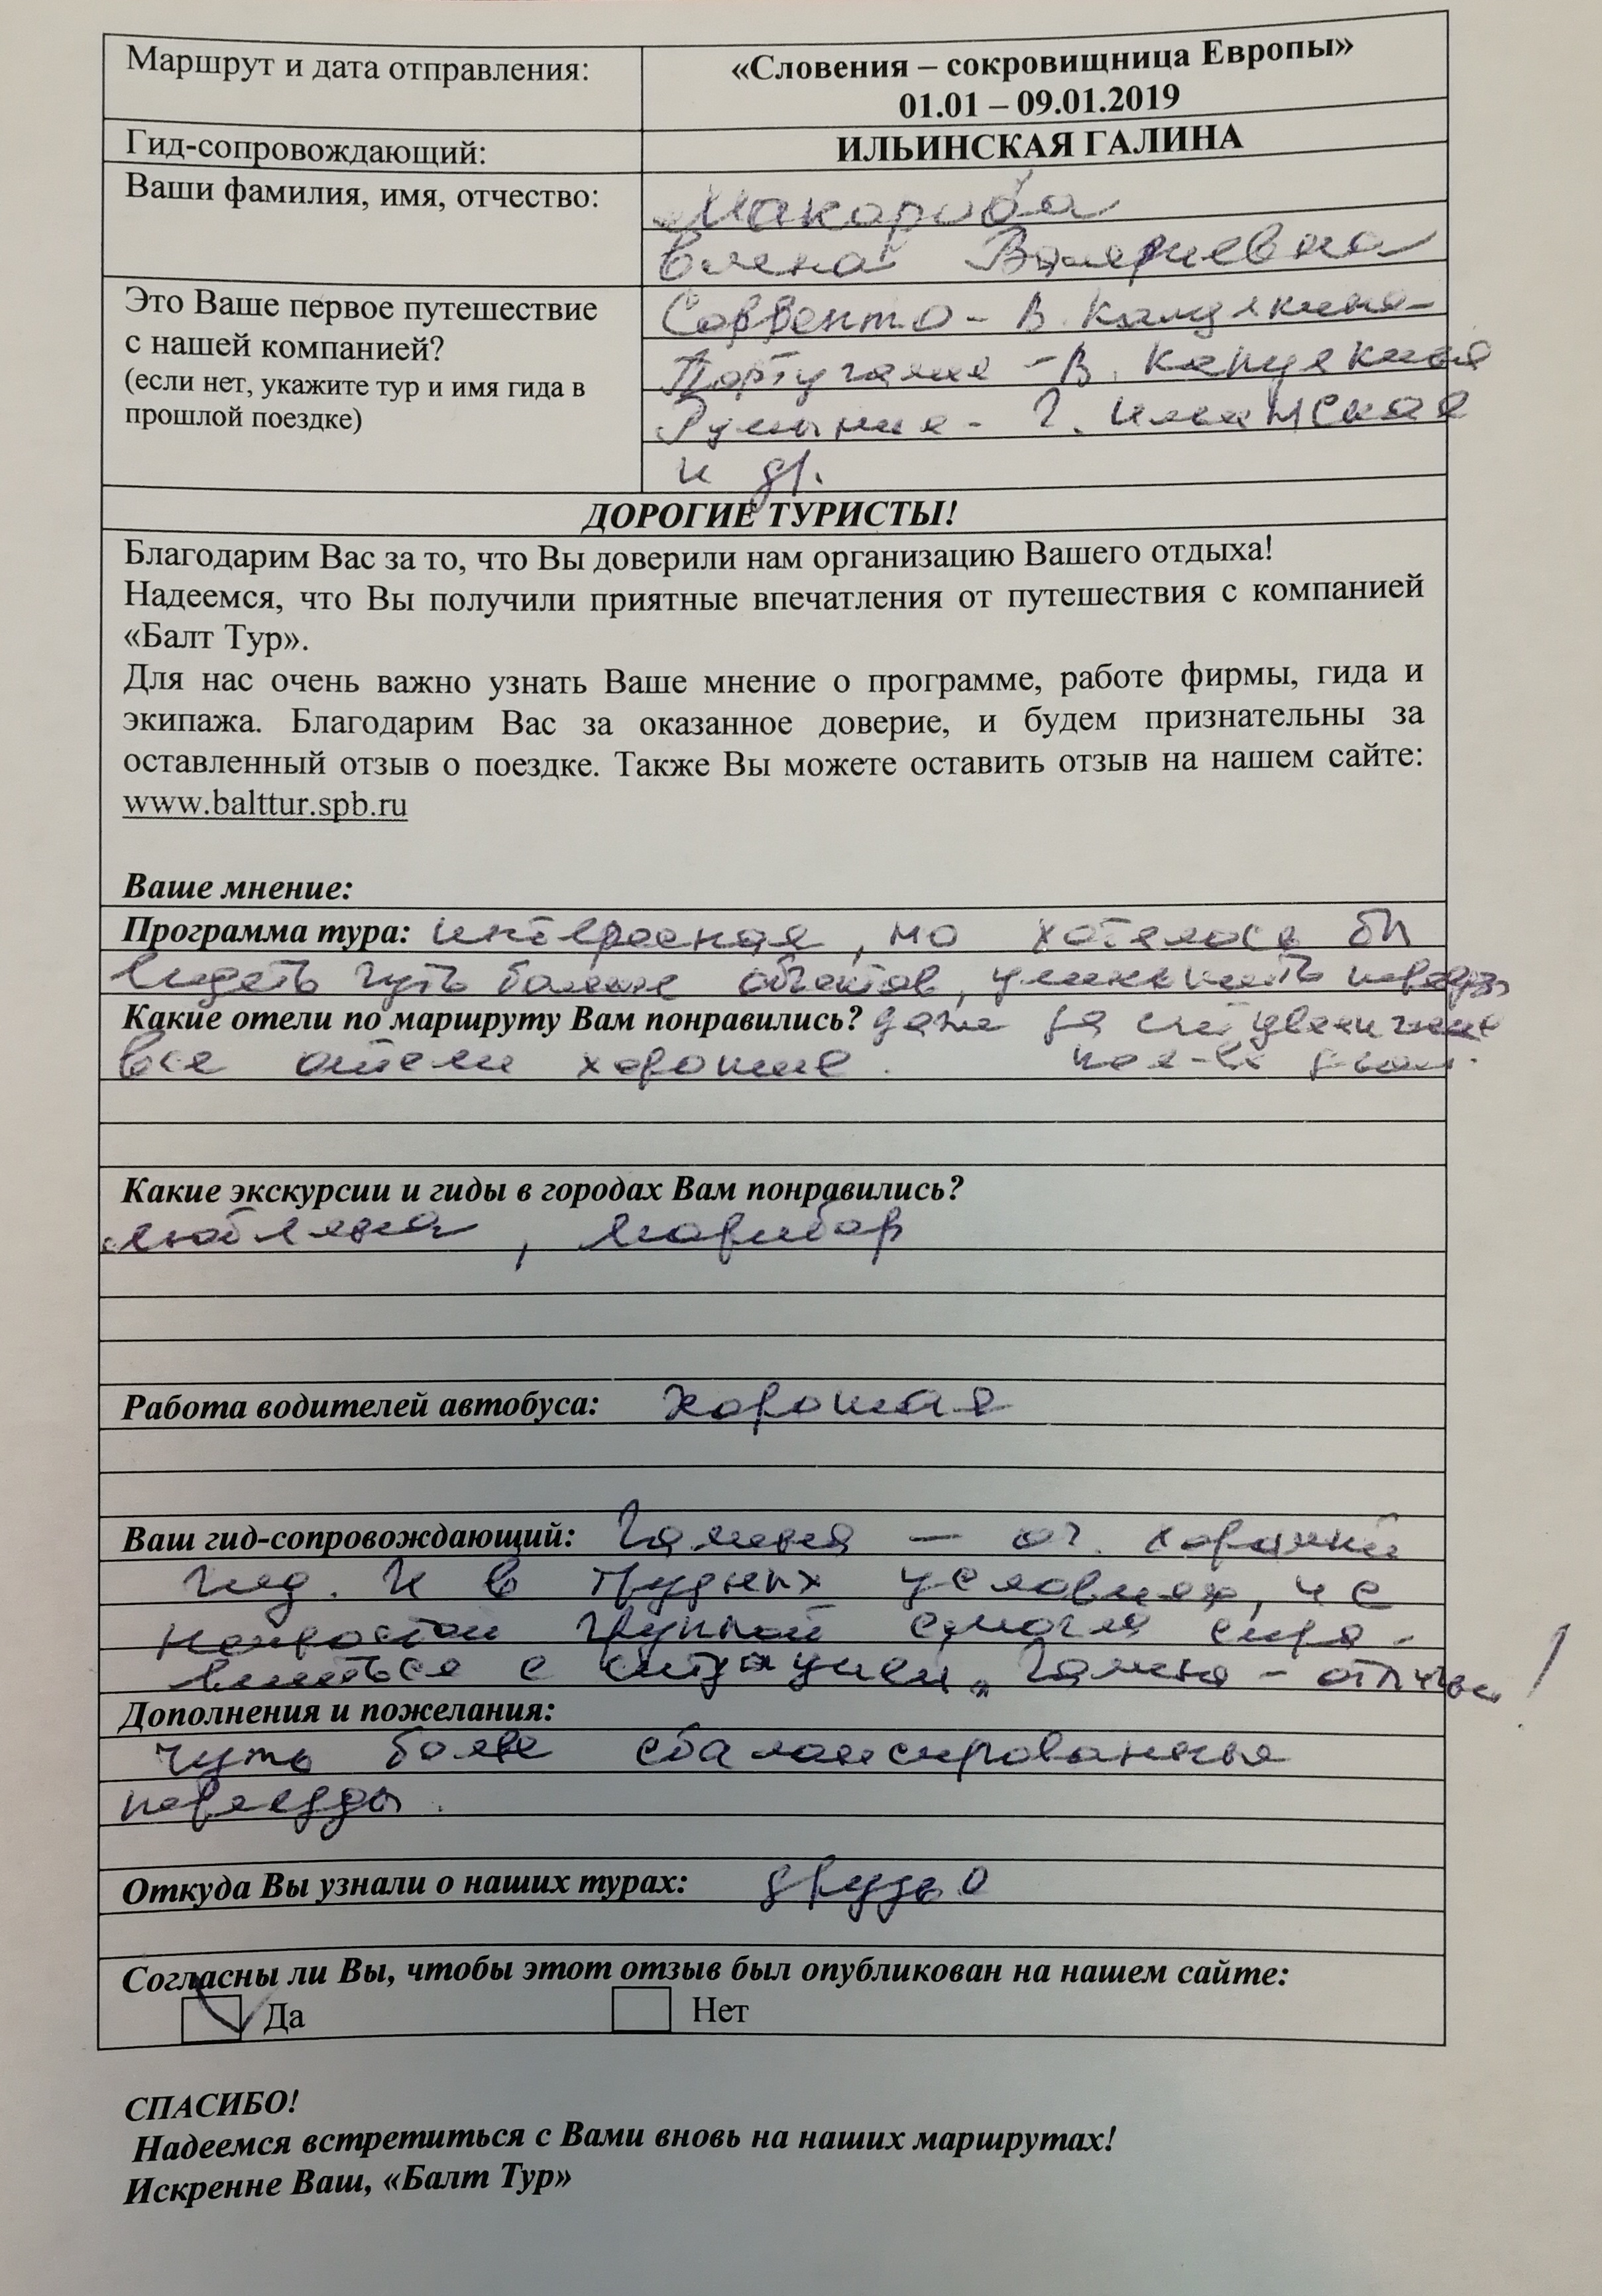 Маршрут и дата отправления:
«Словения – сокровищница Европы»
01.01 – 09.01.2019
Гид-сопровождающий:
ИЛЬИНСКАЯ ГАЛИНА
Ваши фамилия, имя, отчество:
Елена Валериевна
Это Ваше первое путешествие
с нашей компанией?
(если нет, укажите тур и имя гида в
прошлой поездке)
Сорренто - В.
Португалия - В.
Румыния - Г. Ильинская
и др.
ДОРОГИЕ ТУРИСТЫ!
Благодарим Вас за то, что Вы доверили нам организацию Вашего отдыха!
Надеемся, что Вы получили приятные впечатления от путешествия с компанией
«Балт Тур».
Для нас очень важно узнать Ваше мнение о программе, работе фирмы, гида и
экипажа. Благодарим Вас за оказанное доверие, и будем признательны за
оставленный отзыв о поездке. Также Вы можете оставить отзыв на нашем сайте:
www.balttur.spb.ru
Ваше мнение:
Программа тура: интересная, но хотелось бы
видеть чуть больше объектов, уменьшить
Какие отели по маршруту Вам понравились? даже за счет
все отели хорошие. кол-ва
Какие экскурсии и гиды в городах Вам понравились?
Любляна, Марибор
Работа водителей автобуса: хорошая
Ваш гид-сопровождающий: Галина — оч. хороший
гид. И в трудных условиях, и с
непростой группой смогла спра-
виться с ситуацией. Галина -
Дополнения и пожелания:
чуть более сбалансированные
переезды.
Откуда Вы узнали о наших турах: друзья
Согласны ли Вы, чтобы этот отзыв был опубликован на нашем сайте:
Да Нет
СПАСИБО!
Надеемся встретиться с Вами вновь на наших маршрутах!
Искренне Ваш, «Балт Тур»